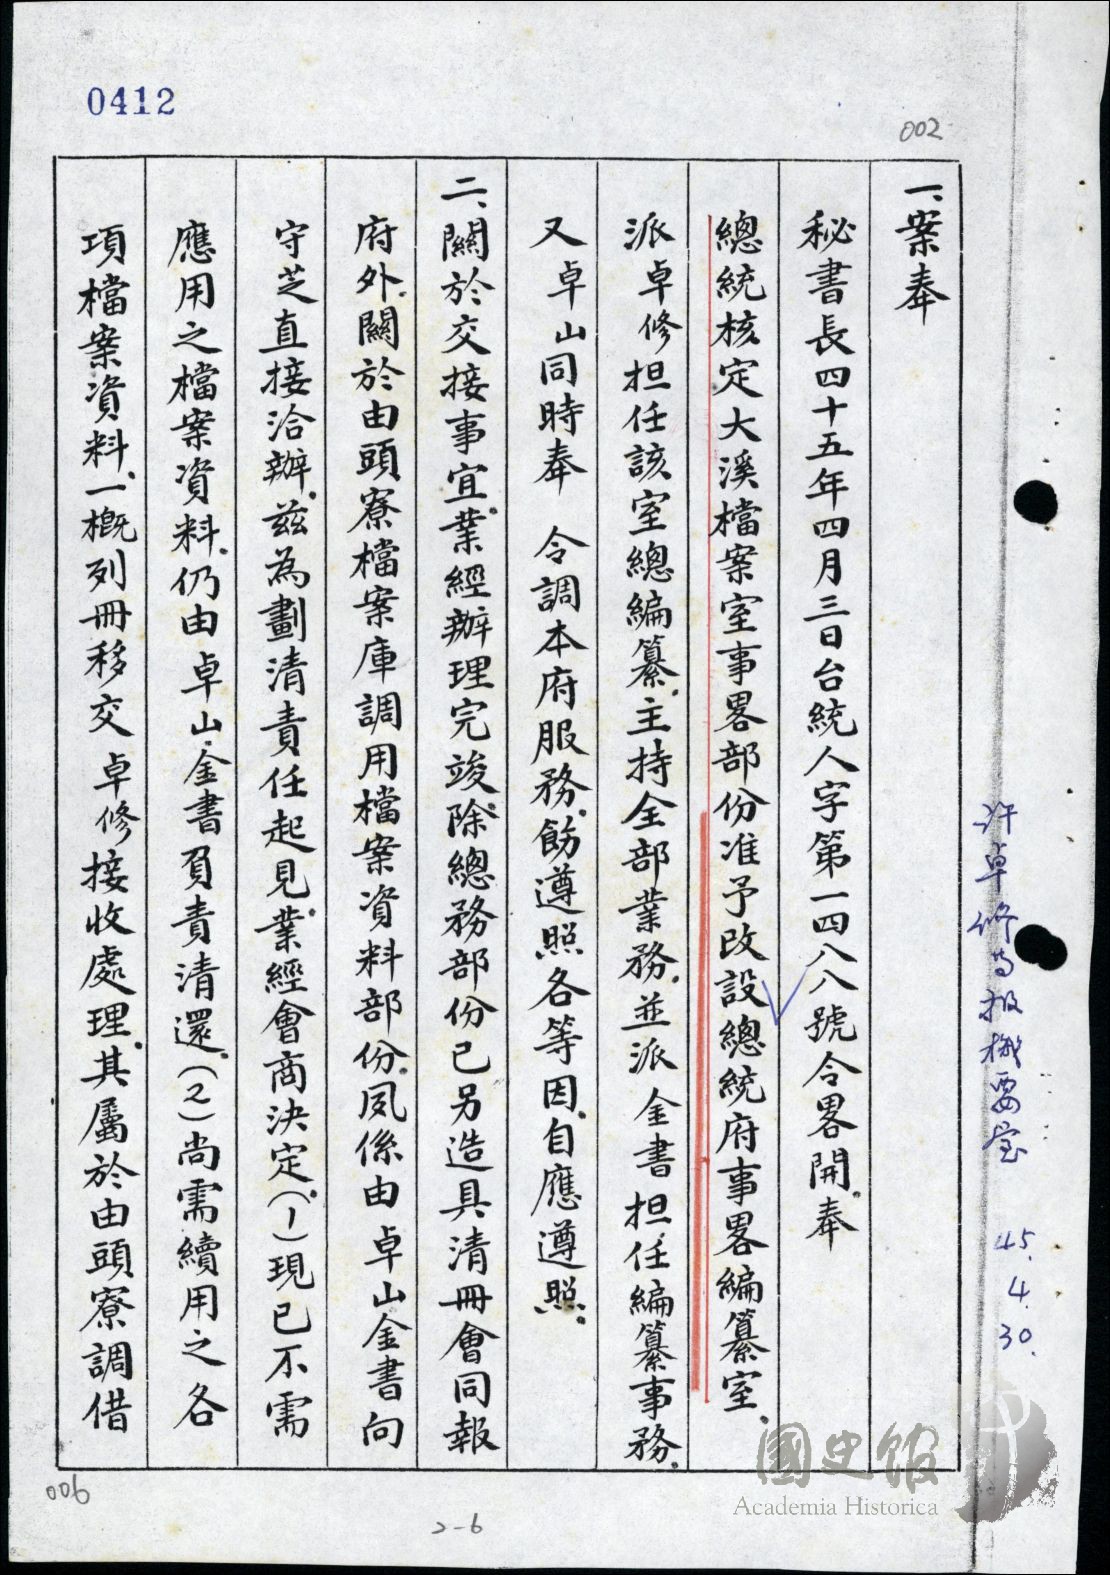 0412
002
一、案奉
秘書長四十五年四月三日台統人字第一四八八號令畧開奉
總統核定大溪檔案室事畧部份准予改設總統府事畧編纂室、
派卓修担任該室總編纂、主持全部業務、並派金書担任編纂事務、
又卓山同時奉 令調本府服務、飭遵照各等因、自應遵照、
二、關於交接事宜、業經辦理完竣、除總務部份已另造具清冊會同報
府外、關於由頭寮檔案庫調用檔案資料部份、夙係由卓山金書向
守芝直接洽辦、茲為劃清責任起見、業經會商決定、(1)現已不需
應用之檔案資料、仍由卓山、金書負責清還、(2)尚需續用之各
項檔案資料、一概列冊移交 卓修接收處理、其屬於由頭寮調借
許卓修為报機要室 45.4.30.
006
2-6
國史館
Academia Historica